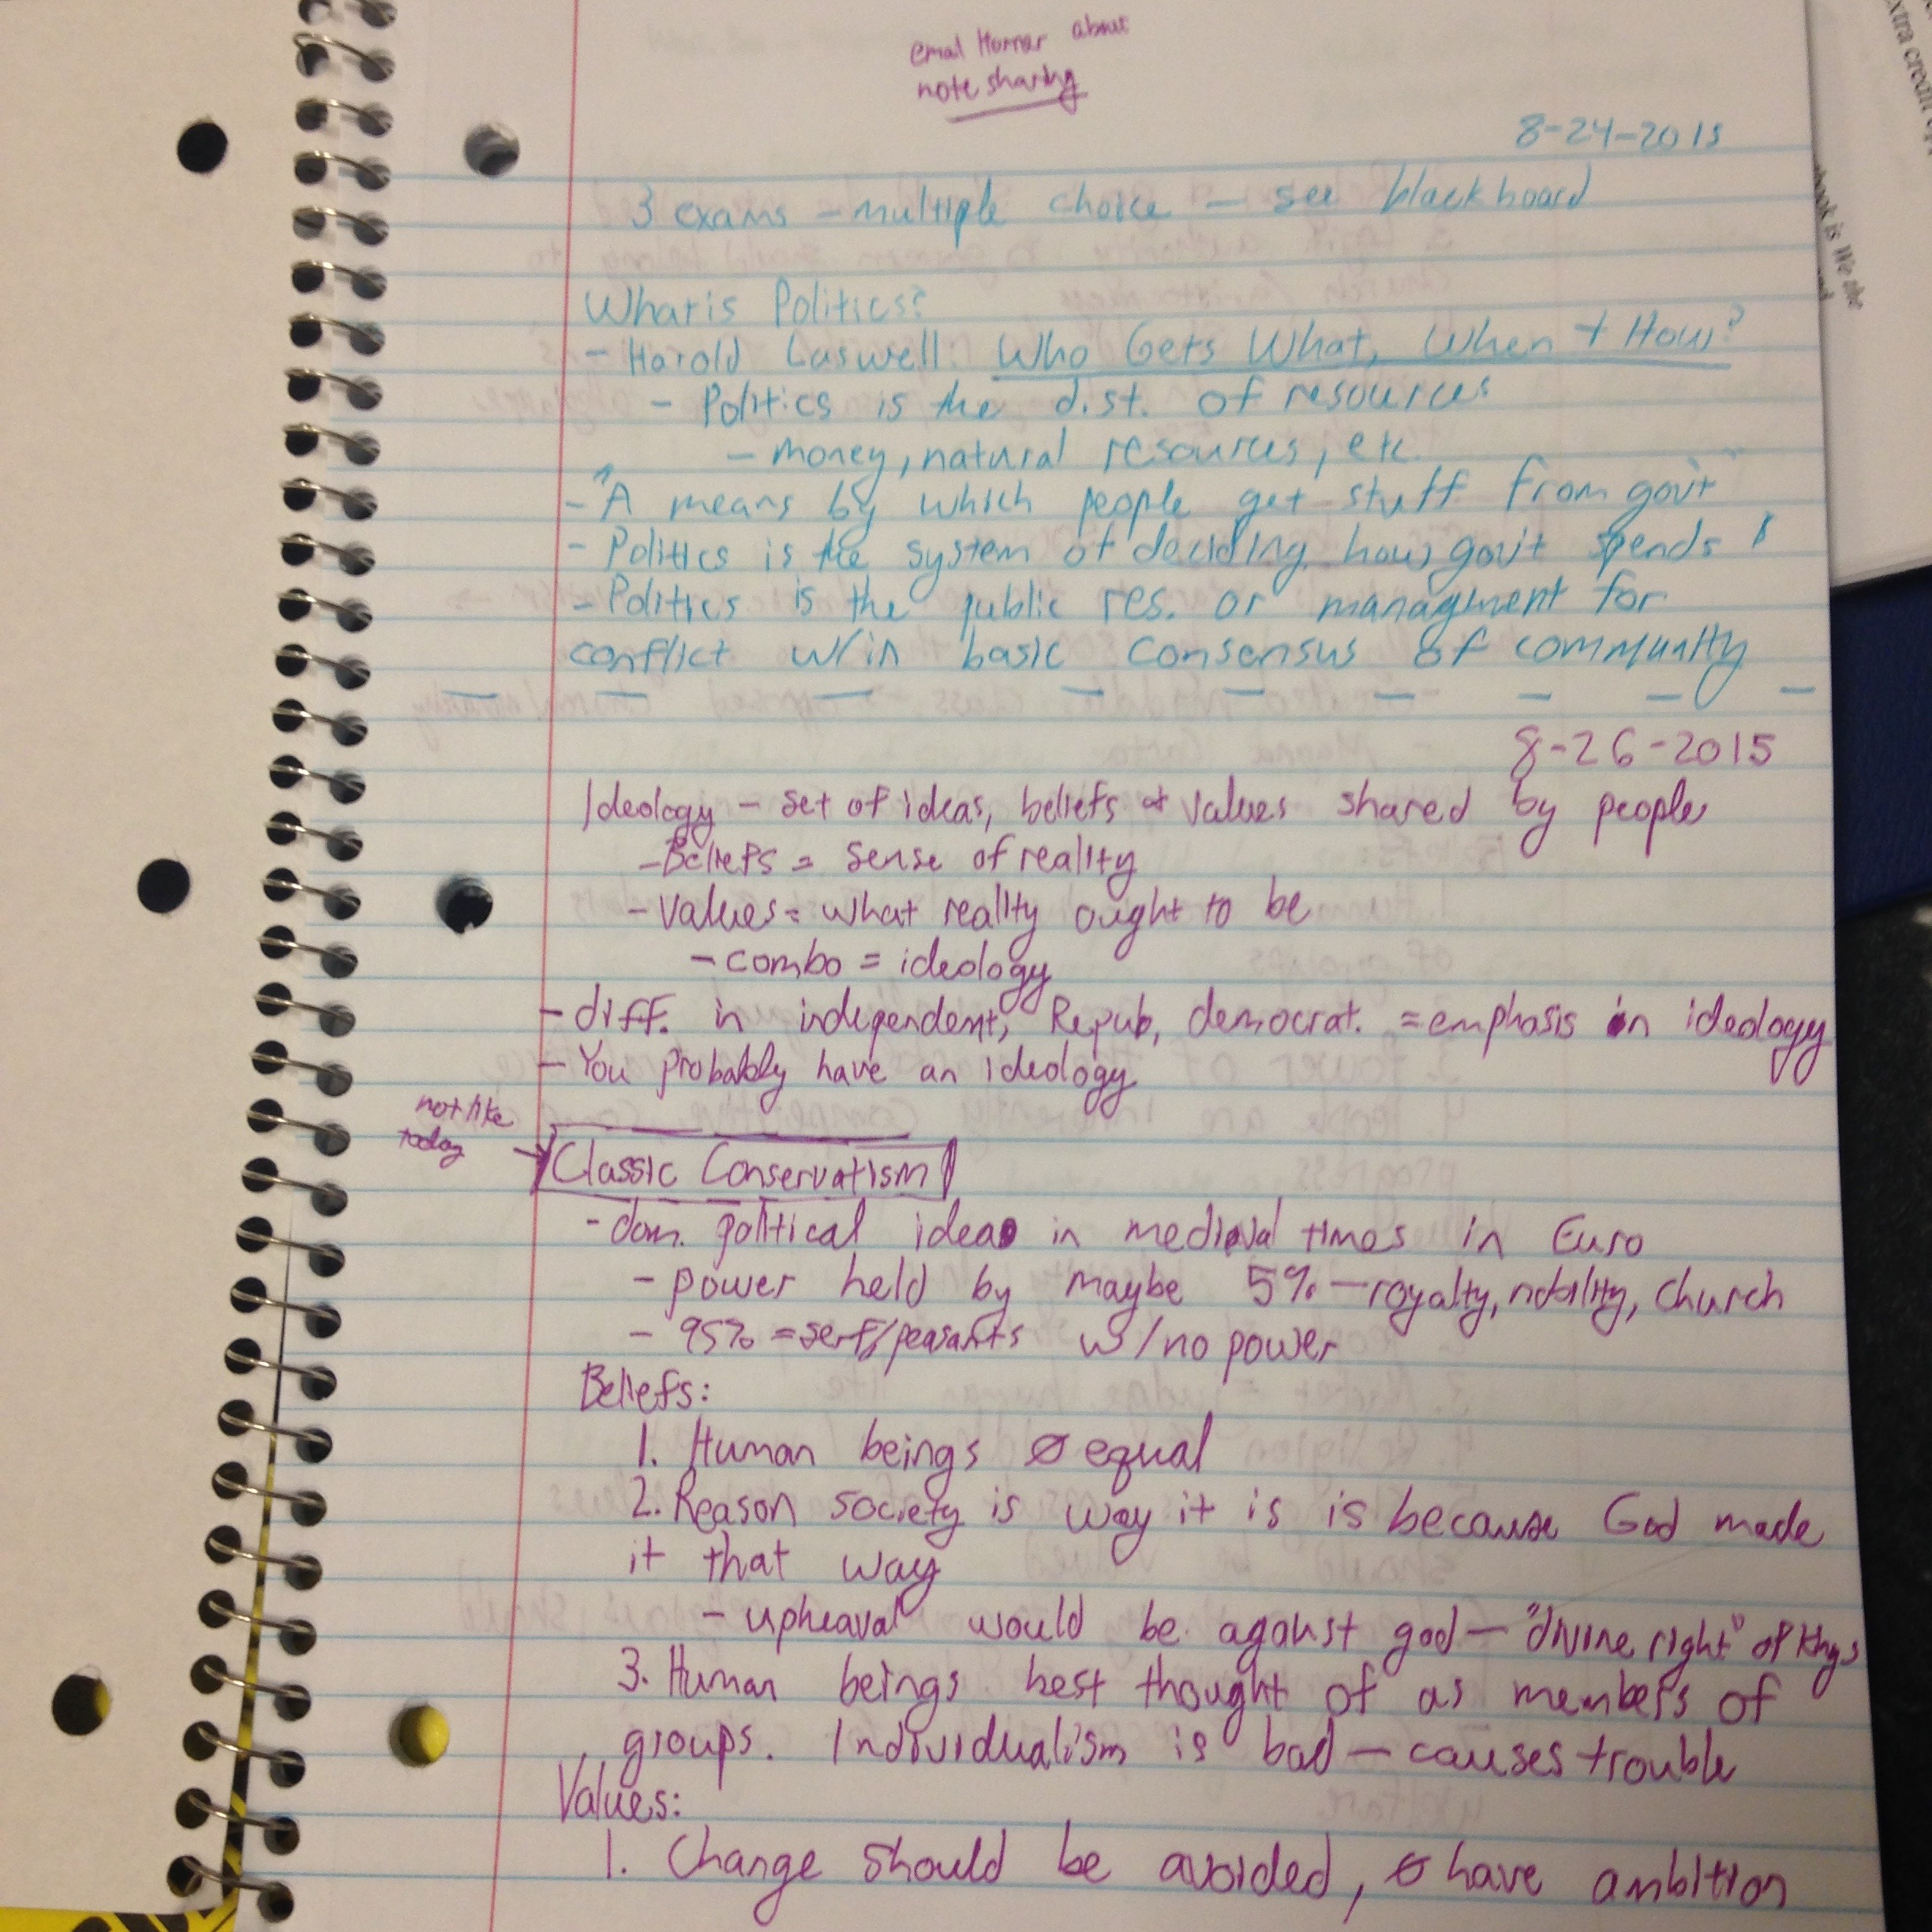 email Horner about
note sharing
8-24-2015
3 exams - multiple choice - see blackboard
What is Politics?
- Harold Laswell: Who Gets What, When + How?
- Politics is the dist. of resources
- money, natural resources, etc.
- "A means by which people get stuff from gov't"
- Politics is the system of deciding how gov't spends $
- Politics is the public res. or managment for
conflict w/in basic consensus of community
8-26-2015
Ideology - set of ideas, beliefs & values shared by people
- Beliefs = sense of reality
- Values = what reality ought to be
- combo = ideology
- diff. in independent, Repub, democrat. = emphasis in ideology
- You probably have an ideology
not like
today
→ Classic Conservatism
- dom. political idea in medieval times in Euro
- power held by maybe 5% - royalty, nobility, church
- 95% = serf/peasants w/no power
Beliefs:
1. Human beings ∅ equal
2. Reason society is way it is is because God made
it that way
- upheaval would be against god - "divine right" of kings
3. Human beings best thought of as members of
groups. Individualism is bad - causes trouble
Values:
1. Change should be avoided, ∅ have ambition
extra credit
book is We the